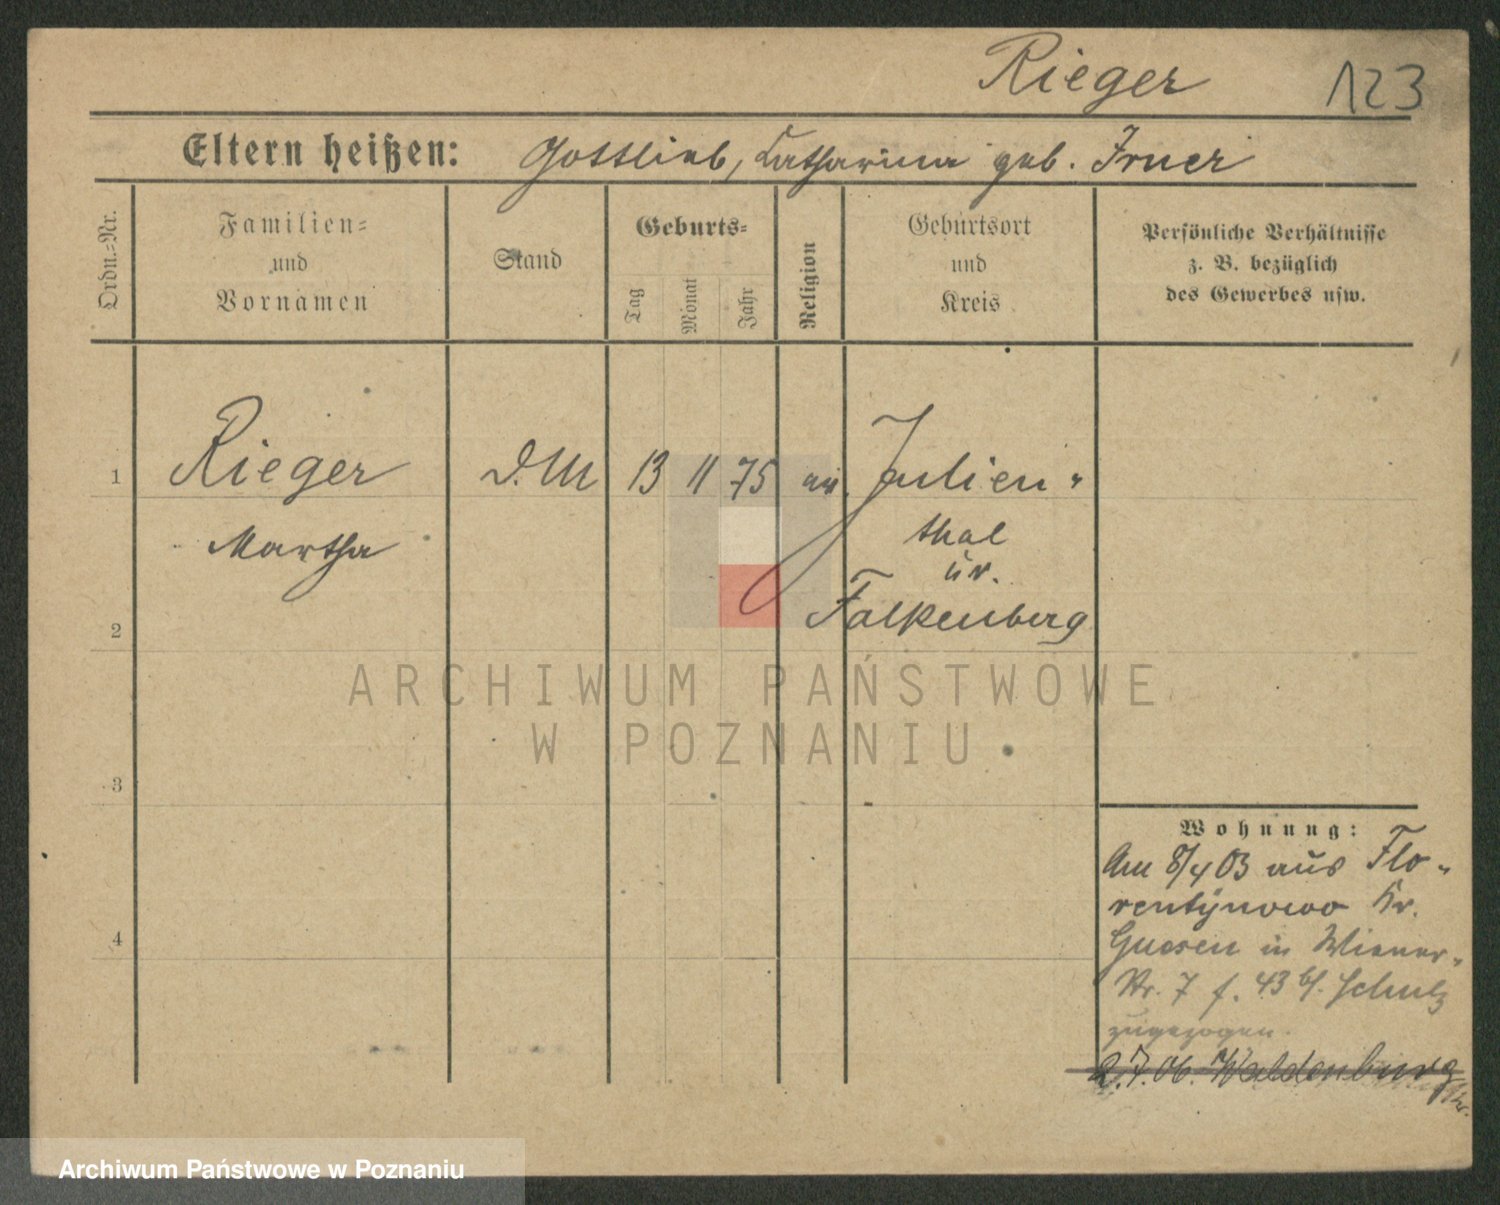 Rieger 123
Eltern heißen: Gottlieb, Katharina geb. Irner
Ordn.-Nr.
Familien-
und
Vornamen
Stand
Geburts-
Tag
Monat
Jahr
Religion
Geburtsort
und
Kreis
Persönliche Verhältnisse
z. B. bezüglich
des Gewerbes usw.
1 Rieger D.M 13 11 75 ev. Julien-
Martha thal
Kr.
2 Falkenberg
ARCHIWUM PAŃSTWOWE
W POZNANIU
3
Wohnung:
Am 8/4 03 aus Flo-
rentynowo Kr.
4 Gnesen in Wiener-
Str. 7 f. 43 b/. Schulz
zugezogen.
2.7.06. Waldenburg
Archiwum Państwowe w Poznaniu